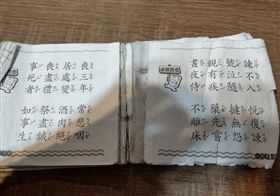 諫不入 悅復諫
號泣隨 撻無怨
親有疾 藥先嘗
晝夜侍 不離床
喪三年 常悲咽
居處變 酒肉絕
喪盡禮 祭盡誠
事死者 如事生